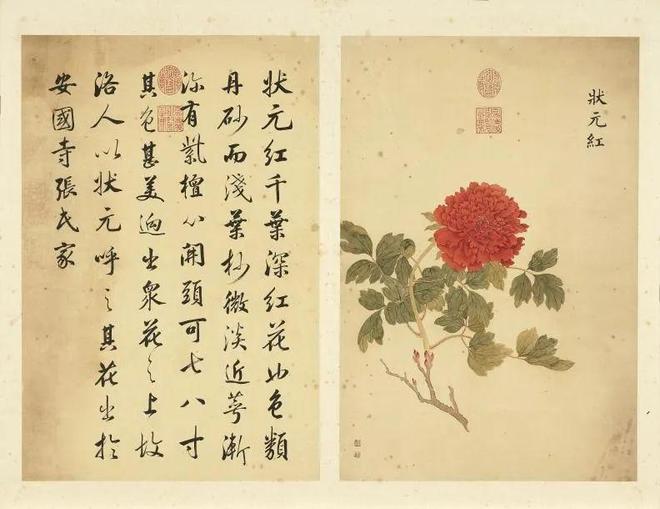 狀元紅
狀元紅千葉深紅花也色類
丹砂而淺葉杪微淡近萼漸
深有紫檀心開頭可七八寸
其色甚美迥出衆花之上故
洛人以狀元呼之其花出於
安國寺張氏家